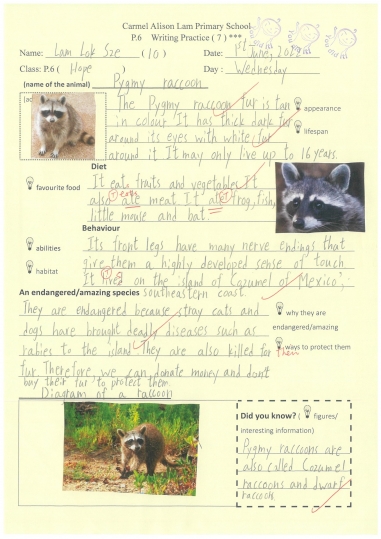 Carmel Alison Lam Primary School
P.6 Writing Practice ( 7 ) ***
Name: Lam Lok Sze ( 10 ) Date: 1st June,
Class: P.6 ( Hope ) Day : Wednesday
(name of the animal) Pygmy raccoon
The Pygmy raccoon fur is tan
in colour It has thick dark fur
around its eyes with white fur
around it It may only live up to 16 years.
appearance
lifespan
Diet
favourite food
It eats fruits and vegetables It
also ate meat It ate frog, fish,
little mouse and bat
Behaviour
abilities
habitat
Its front legs have many nerve endings that
give them a highly developed sense of touch
It lived on the island of Cozumel of Mexico's
southeastern coast
An endangered/amazing species
They are endangered because stray cats and
dogs have brought deadly diseases such as
rabies to the island They are also killed for their
fur Therefore, we can donate money and don't
buy their fur to protect them.
why they are
endangered/amazing
ways to protect them
Diagram of a raccoon
Did you know? ( figures/
interesting information)
Pygmy raccoons are
also called Cozumel
raccoons and dwarf
raccoons